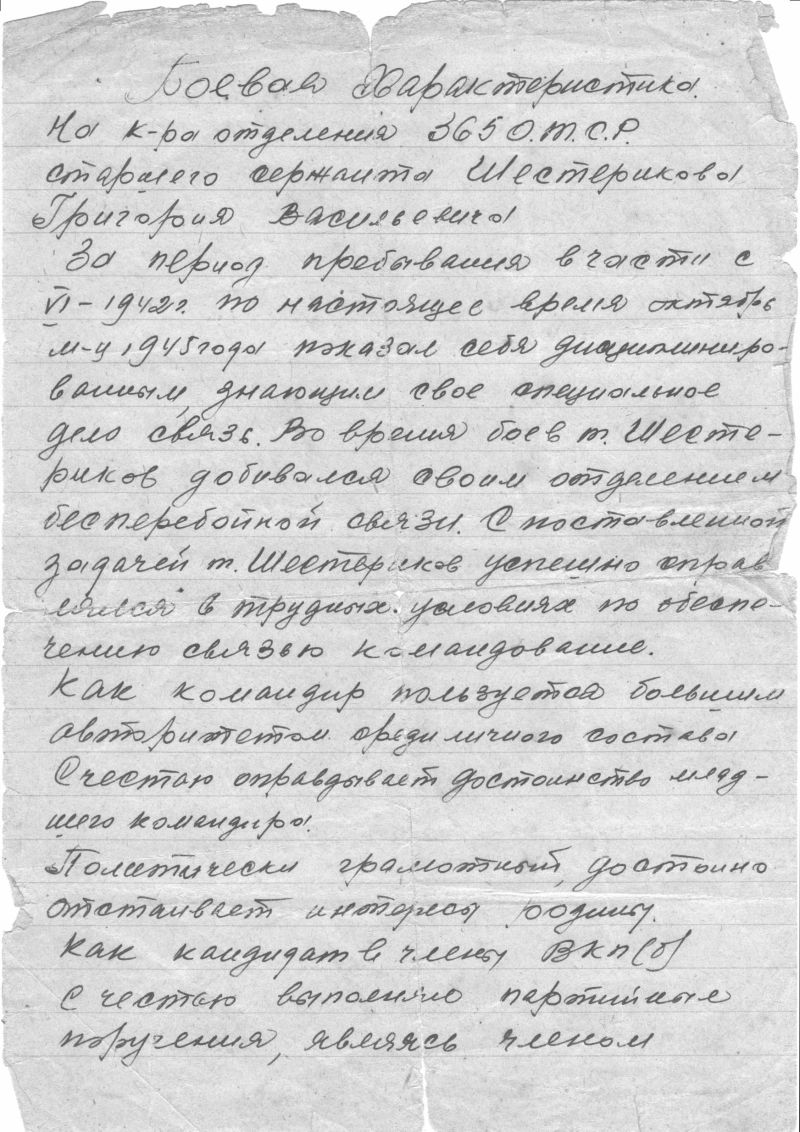 Боевая Характеристика.
На к-ра отделения 365 О.Т.С.Р.
старшего сержанта Шестерикова
Григория Васильевича
За период пребывания в части с
VI – 1942г. по настоящее время октябрь
м-ц 1945 года показал себя дисциплиниро-
ванным, знающим свое специальное
дело связь. Во время боев т. Шесте-
риков добивался своим отделением
бесперебойной связи. С поставленной
задачей т. Шестериков успешно справ
лялся в трудных условиях по обеспе-
чению связью командование.
Как командир пользуется большим
авторитетом среди личного состава
С честью оправдывает достоинство млад-
шего командира.
Политически грамотный, достойно
отстаивает интересы родины.
Как кандидат в члены ВКП(б)
с честью выполнял партийные
поручения, являясь членом